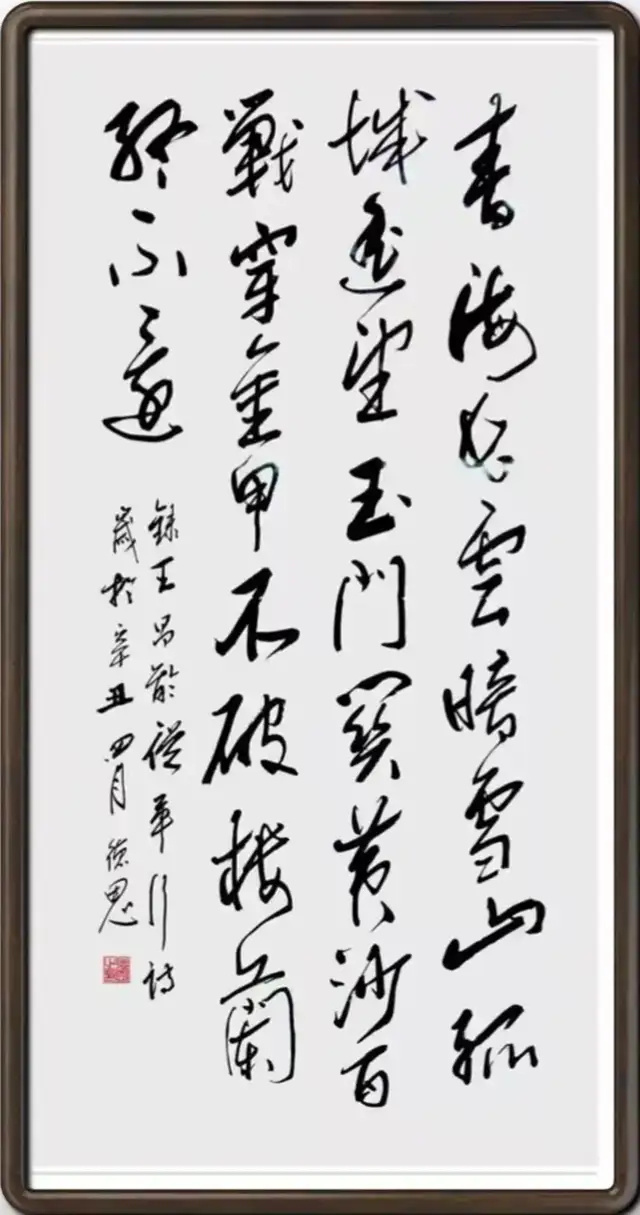 青海长雲暗雪山孤
城遥望玉門關黄沙百
戰穿金甲不破樓蘭
終不還
録王昌齡從軍行詩
歲於辛丑四月德思